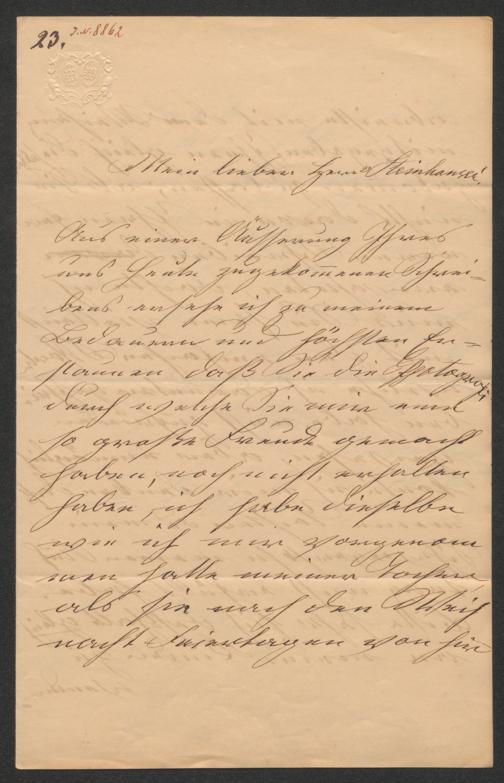 23. J.N. 8862
Mein lieber Herr Steinhauser!
Aus einer Äusserung Ihres
uns heute zugekommenen Schrei-
bens ersehe ich zu meinem
Bedauern und höchsten Er-
staunen daß Sie die Photografi
durch welche Sie mir eine
so große Freude gemacht
haben, noch nicht erhalten
haben, ich habe dieselbe
wie ich mir vorgenom
men hatte meiner Tochter
als sie nach den Weih
nacht Feiertagen von hier